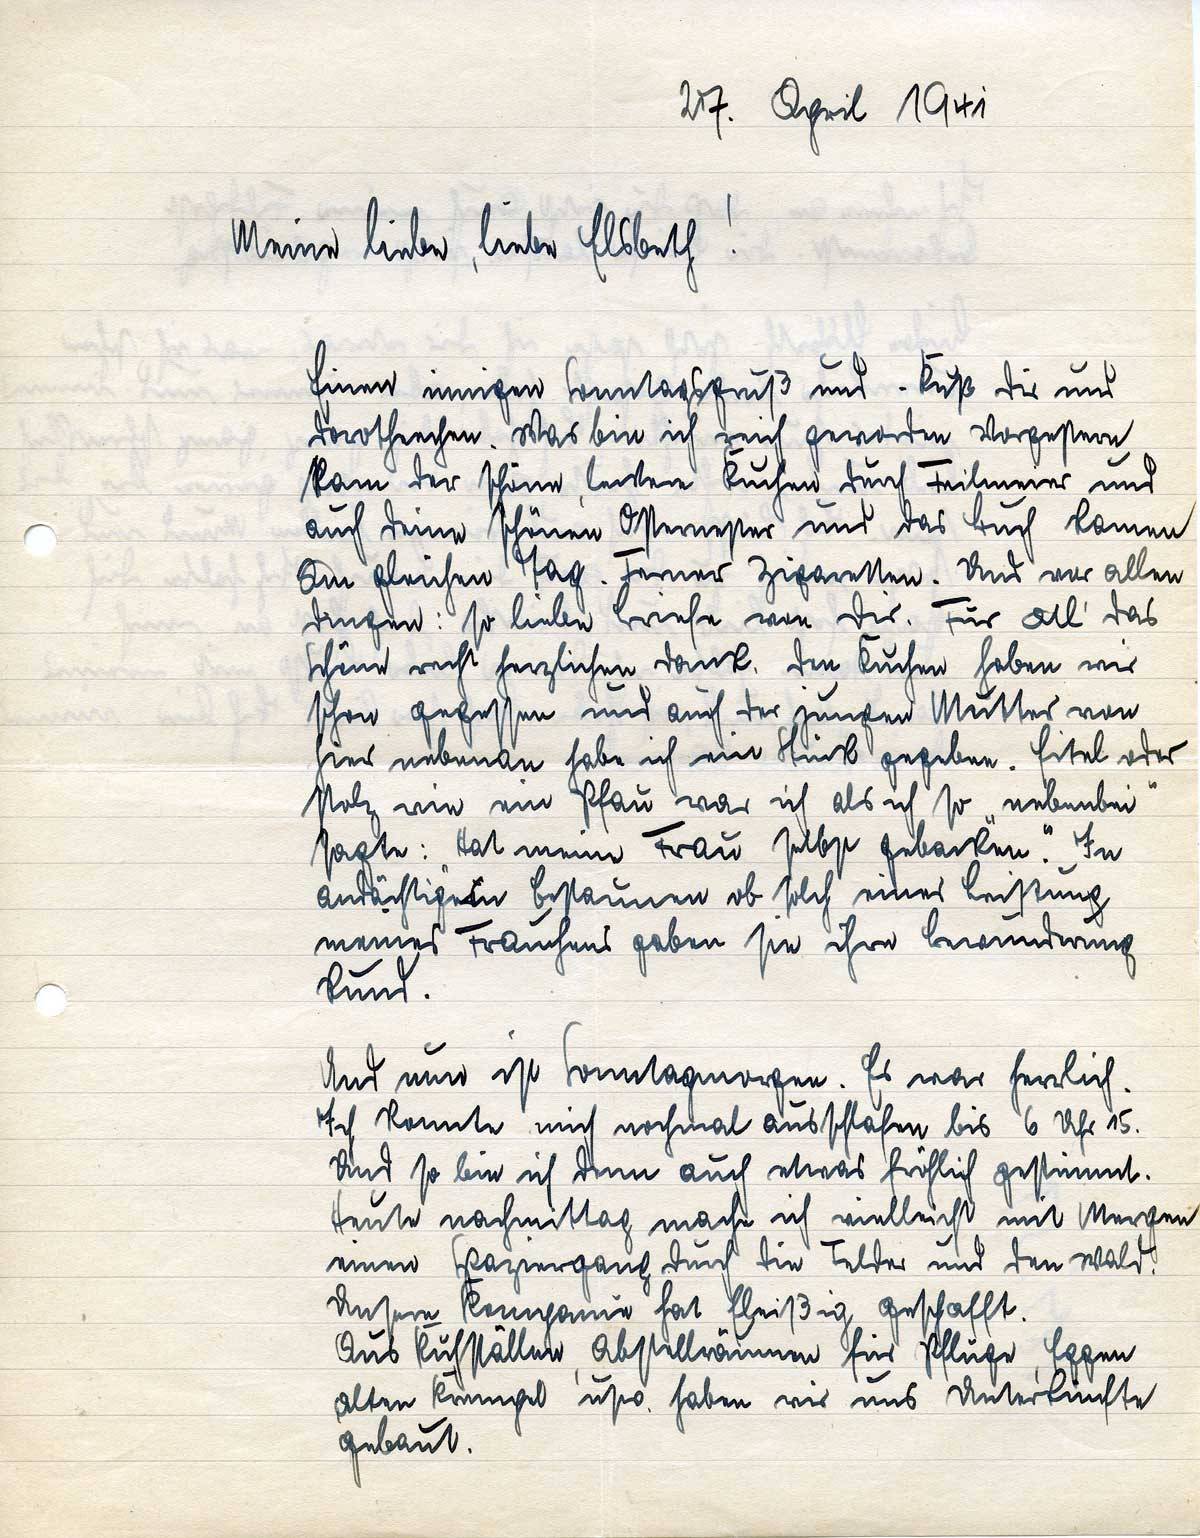 27. April 1941
Meine liebe, liebe Elsbeth!
Einen innigen Sonntagsgruß und - Kuß dir und
Dorotheechen. Was bin ich reich geworden Vorgestern
kam der schöne, leckere Kuchen durch Feilmeier und
auch deine schönen Osternester und das Buch kamen
Am gleichen Tag. Ferner Zigaretten. Und vor allen
dingen: so liebe Briefe von dir. Für all' das
Schöne recht herzlichen Dank. Den Kuchen haben wir
schon gegessen und auch der jungen Mutter von
hier nebenan habe ich ein Stück gegeben. Eitel oder
stolz wie ein Pfau war ich als ich so "nebenbei"
sagte: "Hat meine Frau selbst gebacken". In
andächtigem Bestaunen ob solch einer Leistung
meines Frauchens gaben sie ihre Bewunderung
kund.
Und nun ist Sonntagmorgen. Es war herrlich.
Ich konnte mich nochmal ausschlafen bis 6 Uhr 15.
Und so bin ich denn auch etwas fröhlich gestimmt.
Heute nachmittag mache ich vielleicht mit Mergen
einen Spaziergang durch die Felder und den Wald.
Unsere Kompanie hat fleißig geschafft.
Aus Kuhställen, Abstellräumen für Pflüge, Eggen
alten Krempel, usw. haben wir uns Unterkünfte
gebaut.